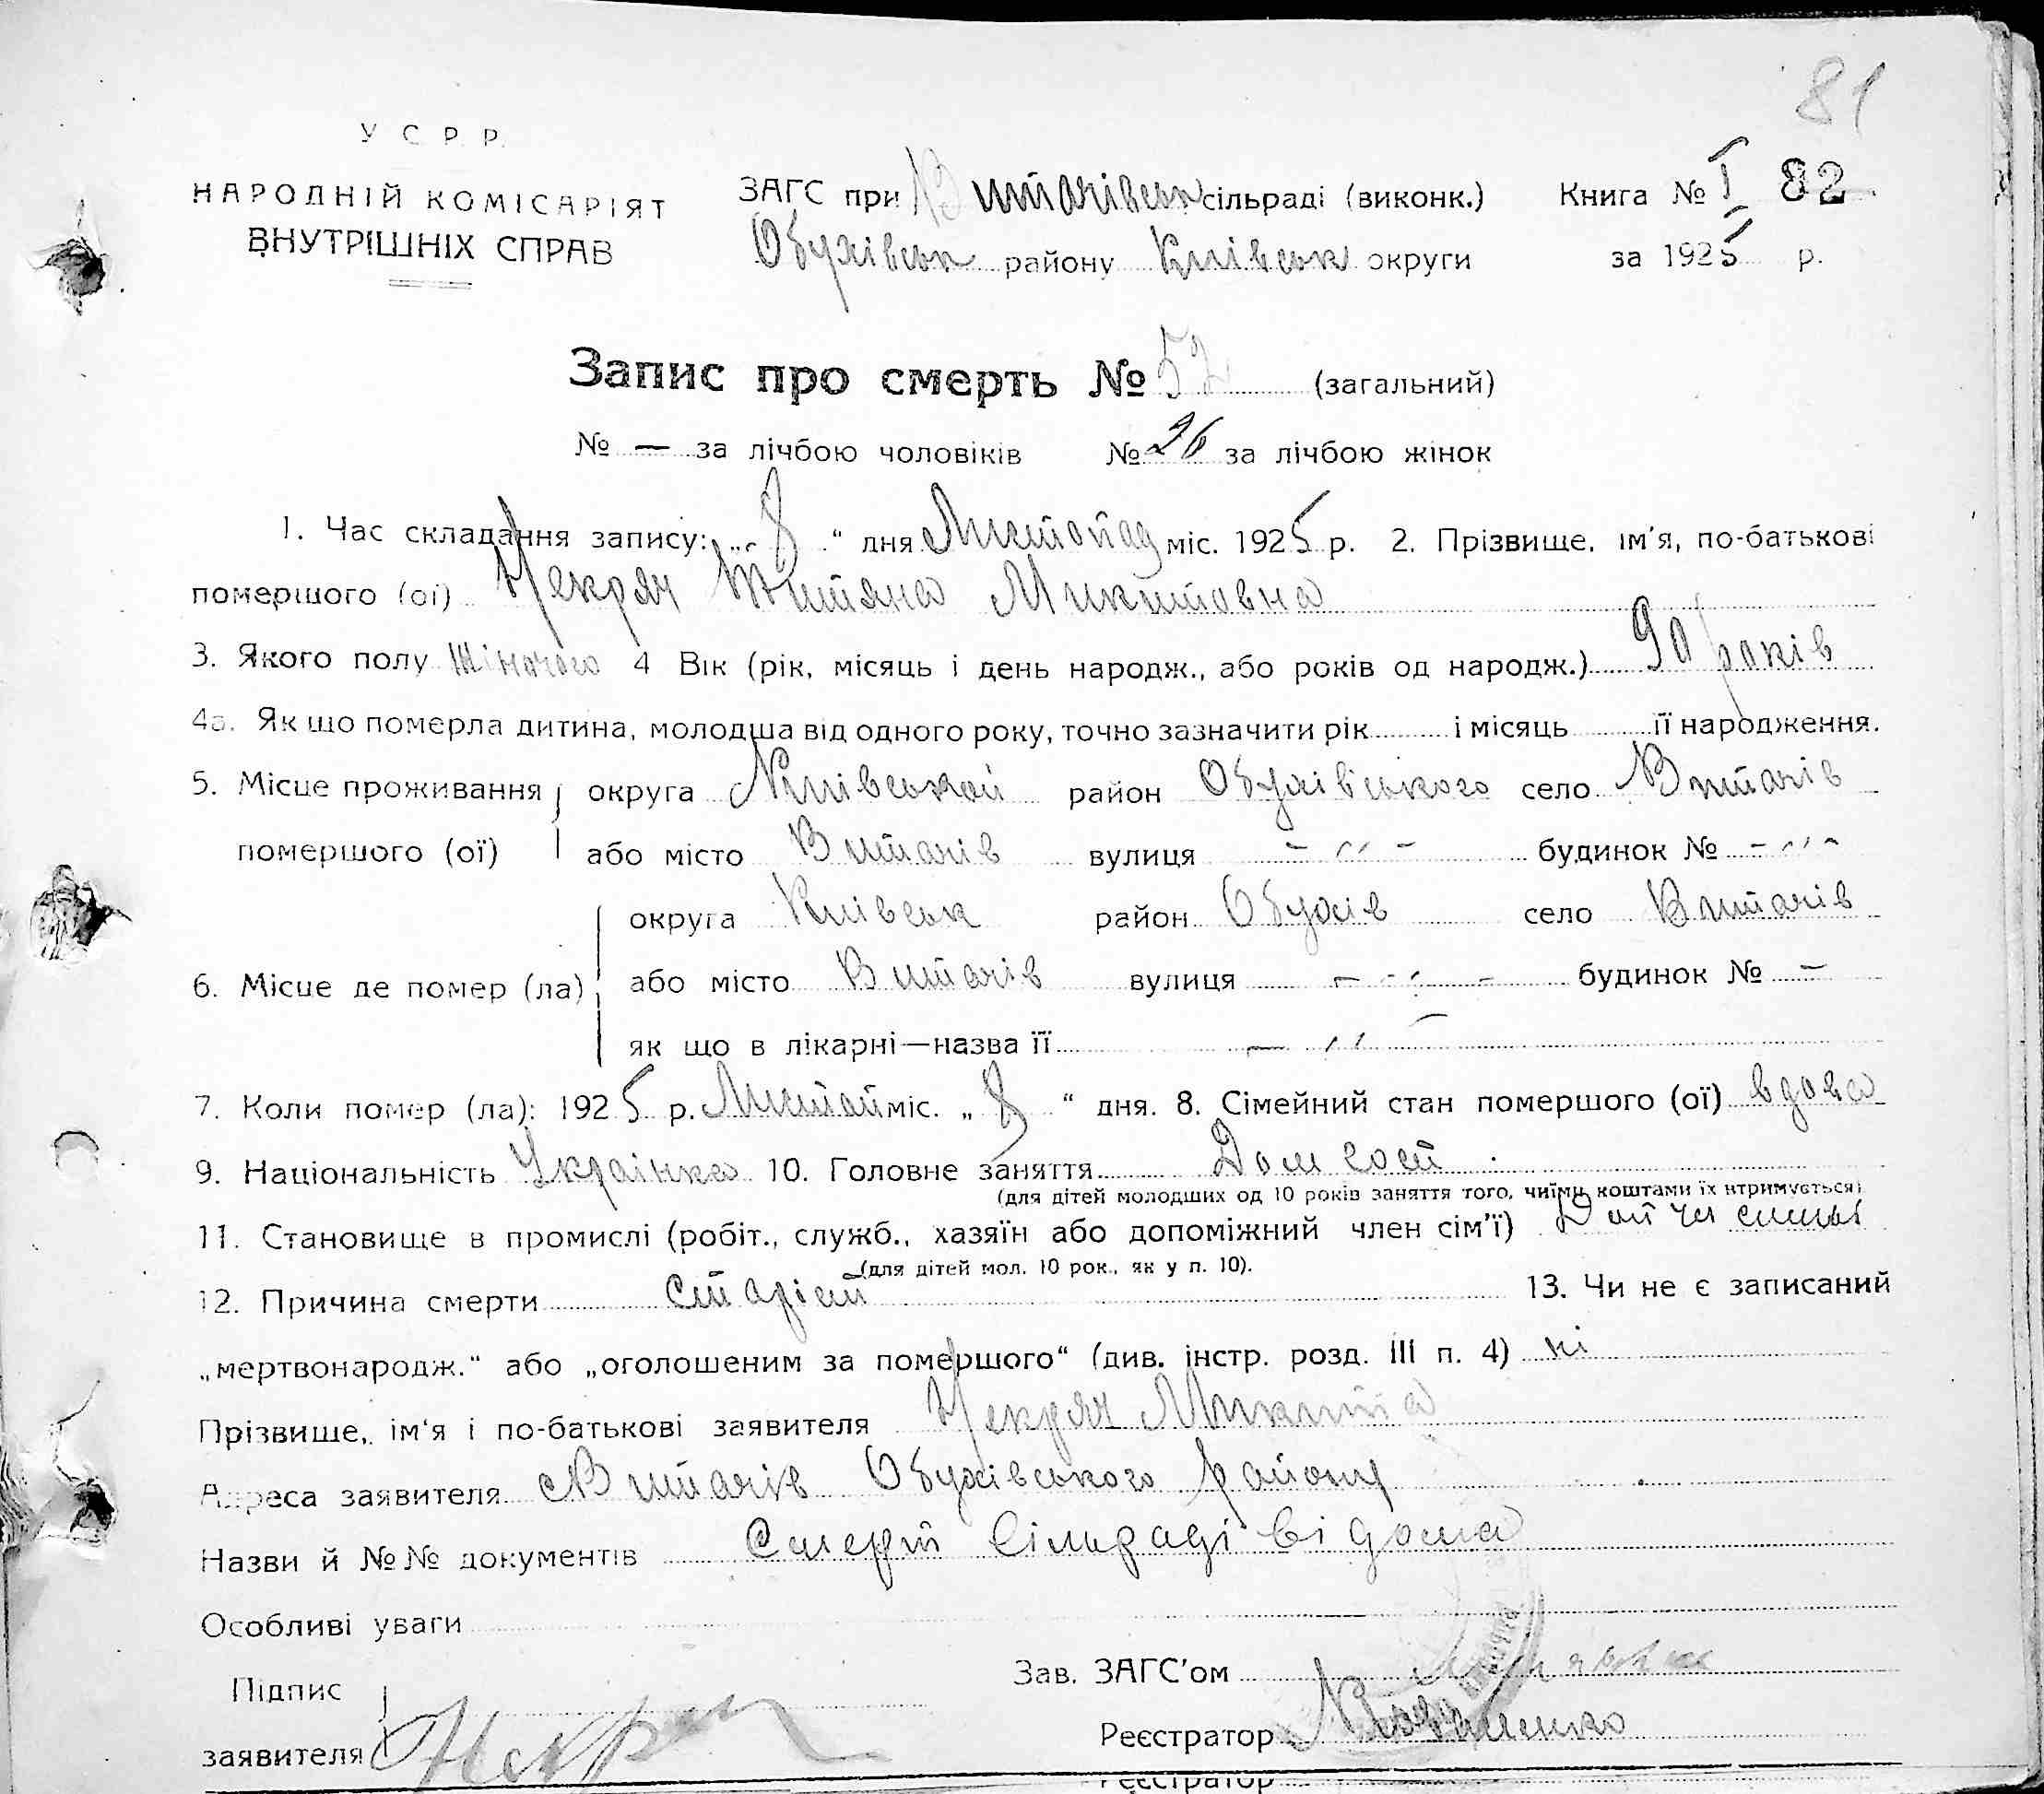 81
У С Р Р.
НАРОДНІЙ КОМІСАРІЯТ
ВНУТРІШНІХ СПРАВ
ЗАГС при Витачівськ сільраді (виконк.)
Книга № I 82
Обухівськ району Київськ округи
за 1925 р.
Запис про смерть № 52 (загальний)
№ — за лічбою чоловіків № 26 за лічбою жінок
1. Час складання запису: „ 8 “ дня Листопад міс. 1925 р. 2. Прізвище, ім'я, по-батькові
помершого (ої) Некряч Титяна Микитовна
3. Якого полу Жіночого 4 Вік (рік, місяць і день народж., або років од народж.) 90 років
4а. Як що померла дитина, молодша від одного року, точно зазначити рік і місяць її народження.
5. Місце проживання округа Київськой район Обухівського село Витачів
помершого (ої) або місто Витачів вулиця - ,, - будинок № - ,, -
округа Київськ район Обухів село Витачів
6. Місце де помер (ла) або місто Витачів вулиця - ,, - будинок № -
як що в лікарні—назва її - ,, -
7. Коли помер (ла): 1925 р. Листоп міс. „ 8 “ дня. 8. Сімейний стан помершого (ої) вдова
9. Національність Українка 10. Головне заняття Дом госп
(для дітей молодших од 10 років заняття того, чиїми коштами їх втримується)
11. Становище в промислі (робіт., служб., хазяїн або допоміжний член сім'ї) Доп чл
(для дітей мол. 10 рок., як у п. 10).
12. Причина смерти старіст 13. Чи не є записаний
„мертвонародж.“ або „оголошеним за помершого“ (див. інстр. розд. III п. 4) ні
Прізвище, ім'я і по-батькові заявителя Некряч Микита
Адреса заявителя Витачів Обухівського району
Назви й №№ документів Смерт Сільраді відома
Особливі уваги
Підпис
Зав. ЗАГС'ом
Реєстратор
заявителя Некряч
Реєстратор